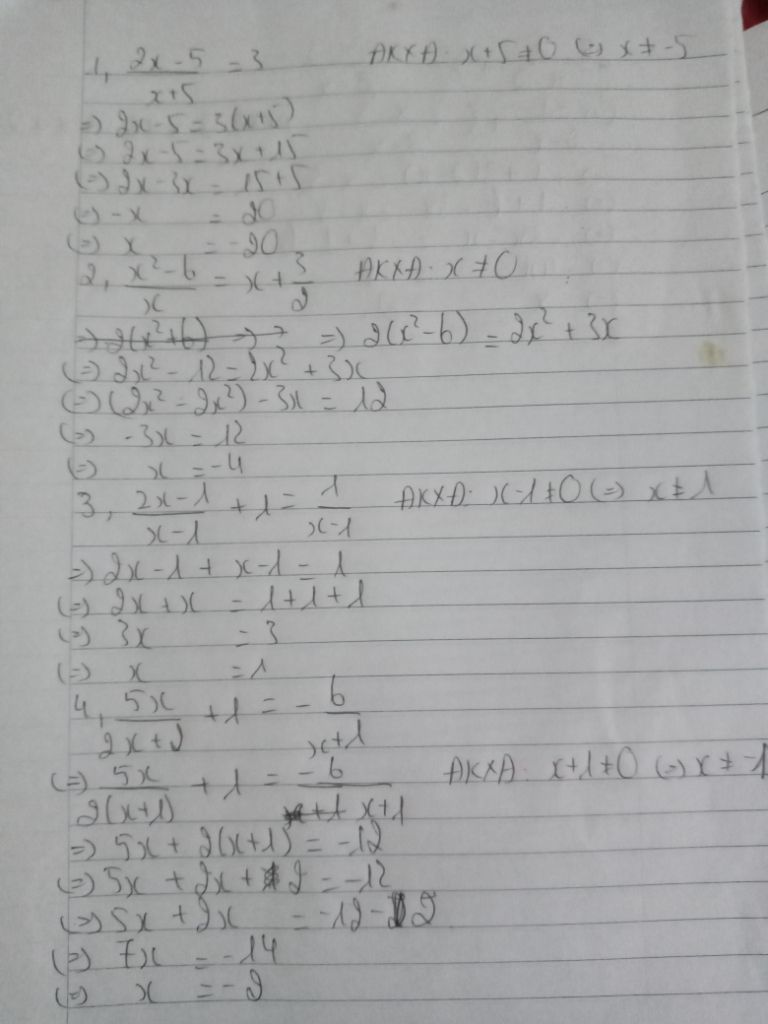 1, (2x-5)/(x+5) = 3 ĐKXĐ: x+5≠0 (=) x≠-5
=) 2x-5=3(x+5)
(=) 2x-5=3x+15
(=) 2x-3x = 15+5
(=) -x = 20
(=) x = -20
2, (x²-6)/x = x+3/2 ĐKXĐ: x≠0
=) 2(x²+6) =) =) 2(x²-6) = 2x²+3x
(=) 2x²-12=2x²+3x
(=) (2x²-2x²)-3x = 12
(=) -3x = 12
(=) x = -4
3, (2x-1)/(x-1) + 1 = 1/(x-1) ĐKXĐ: x-1≠0 (=) x≠1
=) 2x-1+x-1=1
(=) 2x+x = 1+1+1
(=) 3x = 3
(=) x = 1
4, 5x/(2x+2) + 1 = - 6/(x+1)
(=) 5x/(2(x+1)) + 1 = -6/(x+1) ĐKXĐ: x+1≠0 (=) x≠-1
=) 5x+2(x+1) = -12
(=) 5x+2x+2 = -12
(=) 5x+2x = -12-2
(=) 7x = -14
(=) x = -2